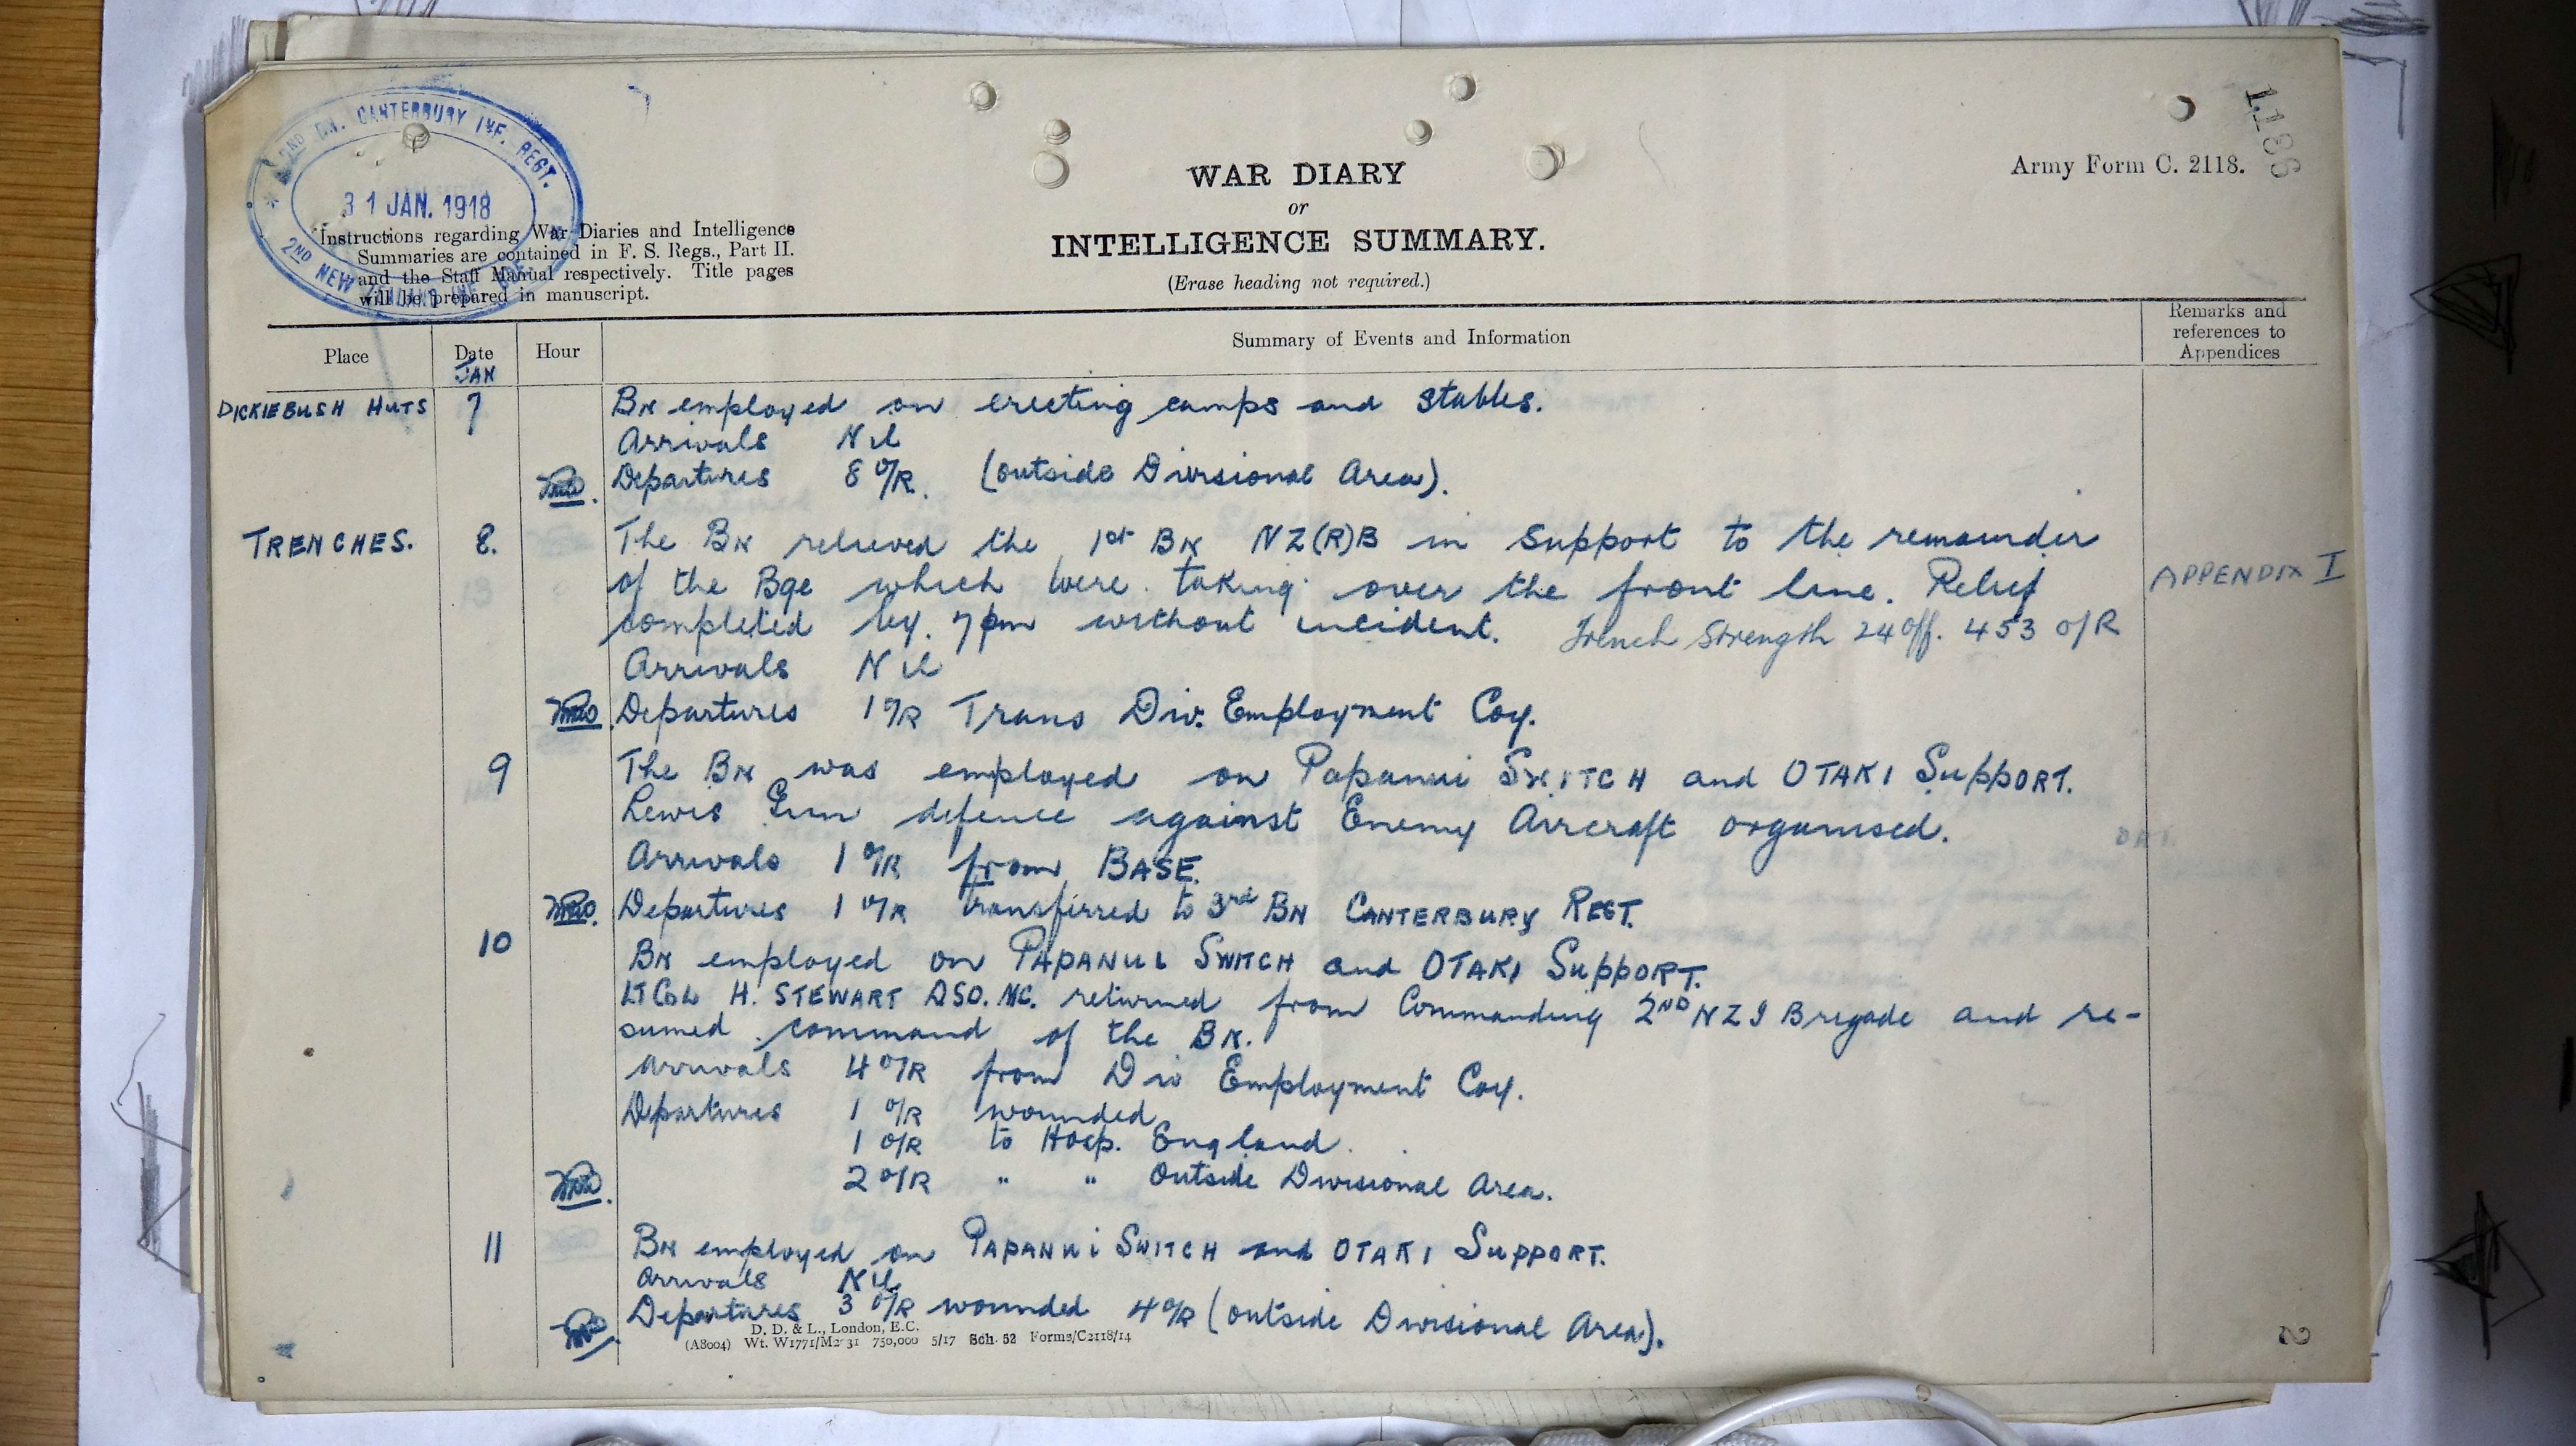 2ND BN. CANTERBURY INF. REGT.
31 JAN. 1918
2ND NEW ZEALAND INF. BDE.
1186
Army Form C. 2118.
WAR DIARY
or
INTELLIGENCE SUMMARY.
(Erase heading not required.)
Instructions regarding War Diaries and Intelligence
Summaries are contained in F. S. Regs., Part II.
and the Staff Manual respectively. Title pages
will be prepared in manuscript.
Place Date Hour Summary of Events and Information Remarks and references to Appendices
JAN
DICKIEBUSH HUTS 7 BN employed on erecting camps and stables.
Arrivals Nil
Departures 8 O/R. (outside Divisional Area).
TRENCHES. 8. The BN relieved the 1st BN NZ(R)B in support to the remainder
of the Bge which were taking over the front line. Relief APPENDIX I
completed by 7pm without incident. Trench Strength 24 off. 453 O/R
Arrivals Nil
Departures 1 O/R Trans Div. Employment Coy.
9 The BN was employed on Papanui SWITCH and OTAKI SuppORT.
Lewis Gun defence against Enemy Aircraft organised.
Arrivals 1 O/R from BASE.
Departures 1 O/R transferred to 3rd BN CANTERBURY REGT.
10 BN employed on PAPANUI SWITCH and OTAKI SuppORT.
LT COL H. STEWART DSO. MC. returned from Commanding 2ND NZI Brigade and re-
sumed command of the BN.
Arrivals 4 O/R from Div Employment Coy.
Departures 1 O/R wounded
1 O/R to Hosp. England.
2 O/R " " Outside Divisional Area.
11 BN employed on PAPANUI SWITCH and OTAKI SuppORT.
Arrivals Nil
Departures 3 O/R wounded 4 O/R (outside Divisional Area).
D. D. & L., London, E.C.
(A8004) Wt. W1771/M2 31 750,000 5/17 Sch. 52 Forms/C2118/14
2